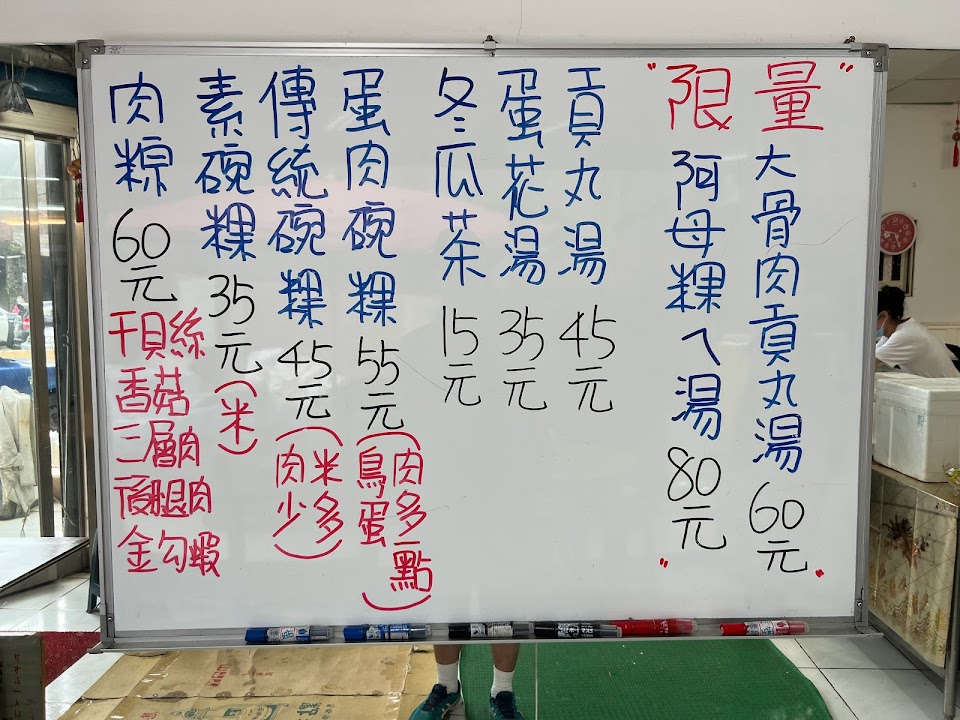 "限量"
大骨肉貢丸湯 60元
阿母粿ㄟ湯 80元
貢丸湯 45元
蛋花湯 35元
冬瓜茶 15元
蛋肉碗粿 55元
(肉多一點
鳥蛋)
傳統碗粿 45元
(米多
肉少)
素碗粿 35元
(米)
肉粽 60元
干貝絲
香菇
三層肉
後腿肉
金勾蝦